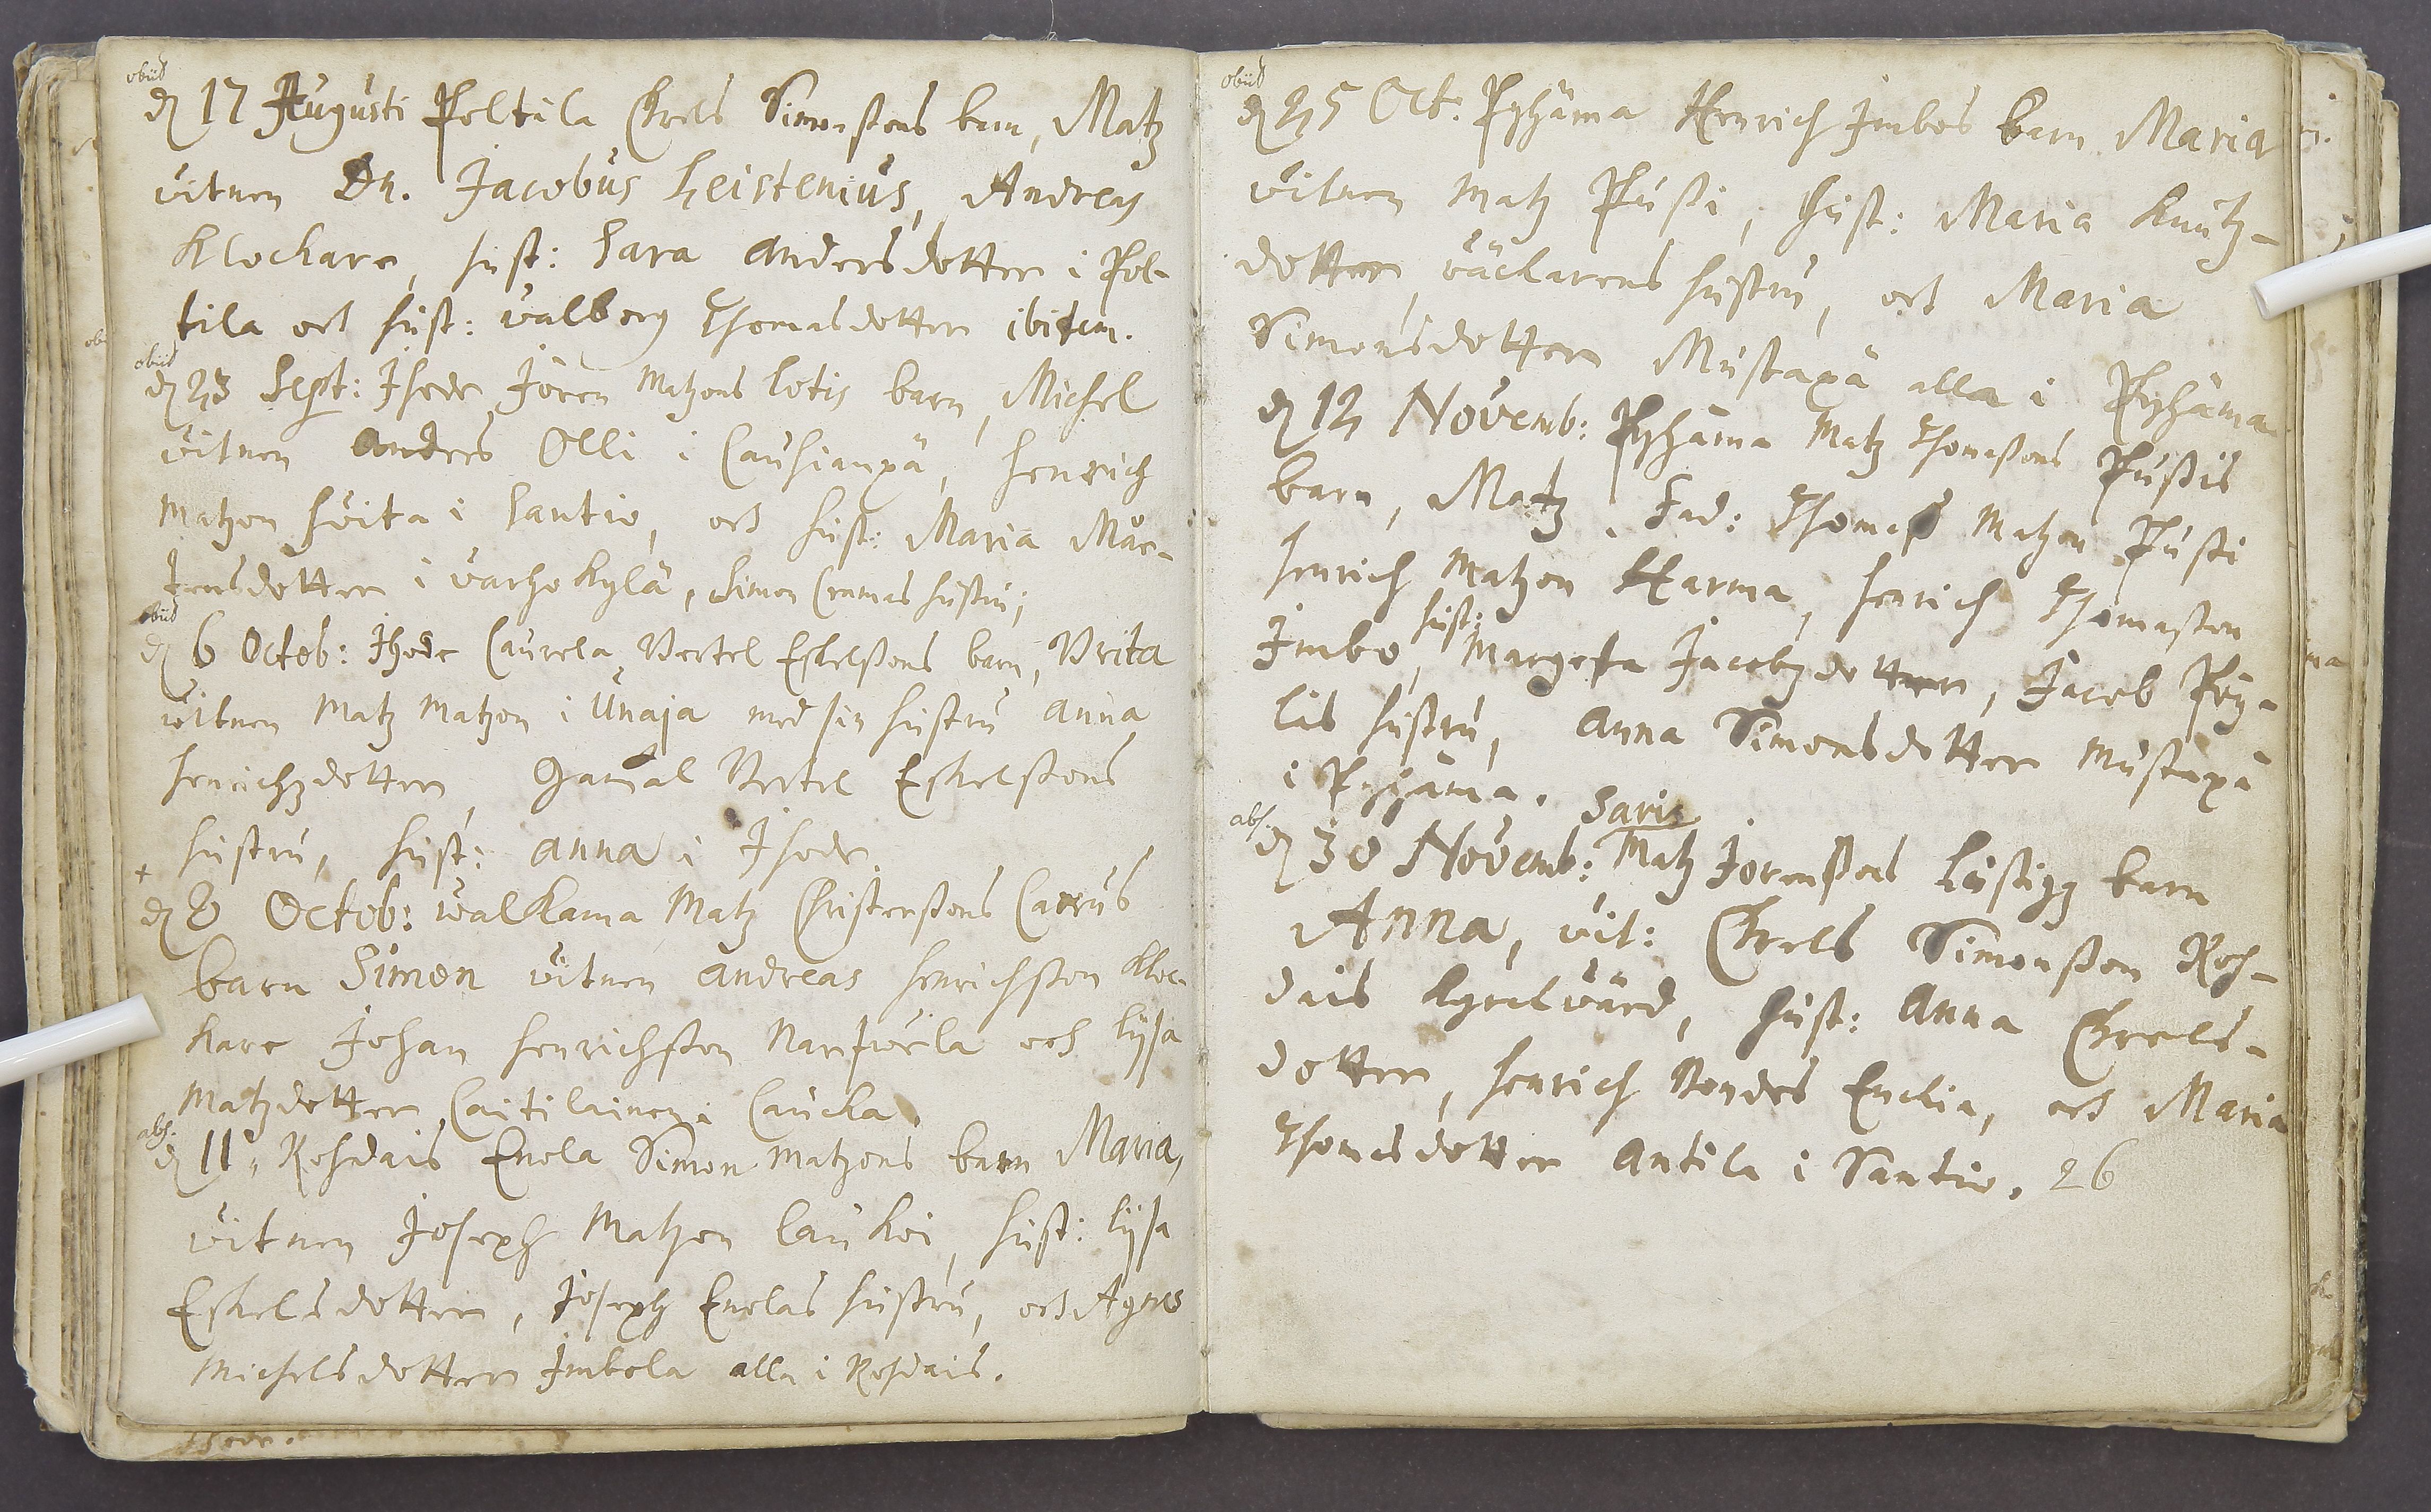 obiit
d 17 Augusti Poltila Chrels Simonssons barn, Matz
vitnen Dn. Jacobus Leistenius, Andreas
Klockare, hust: Sara Andersdotter i Pol-
tila och hust: Walborg Thomasdotter ibidem.
obiit
d 23 Sept: Ihode Jören Matzons Lotis barn, Michel
vitnen Anders Olli i Cauhianpä, Henrich
Matzon Hvita i Santio, och hust: Maria Mår-
tensdotter i Varhokylä, Simon Cremas hustru;
obiit
d 6 Octob: Ihode Caurela Bertel Eskelssons barn, Brita
vitnen Matz Matzon i Unaja med sin hustru Anna
Henrichzdotter, Gamal Bertel Eskelssons
hustru, hust: Anna i Ihode.
+
d 8 Octob: Walkama Matz Christerssons Carrus
barn Simon vitnen Andreas Henrichsson Kloc-
kare Johan Henrichsson Narfwela och Lijsa
Matzdotter Caitilainen i Caucka.
abs.
d 11 " Rohdais Enola Simon Matzons barn Maria,
vitnen Joseph Matzon Laukoi, hust: Lijsa
Eskelsdotter, Joseph Enolas hustru, och Agnes
Michelsdotter Imbola alla i Rohdais.
obiit
d 25 Oct. Pyhäma Henrich Imbos barn Maria
vitnen Matz Pussi, hust: Maria Knutz-
dotter, väckarens hustru, och Maria
Simonsdotter Mustapä alla i Pyhäma
d 12 Novemb: Pyhäma Matz Thomassons Pussis
barn, Matz. Fad: Thomas Matzon Pussi
Henrich Matzon Harma, Henrich Thomasson
Imbo, hust: Margeta Jacobzdotter, Jacob Pöy-
läs hustru, Anna Simonsdotter Mustapä
i Pyhäma.
abs.
d 30 Novemb: Saris Matz Jörenssons Lustigz barn
Anna, vit: Chrels Simonsson Roh-
dais Kyrckvärd, hust: Anna Chrels-
dotter, Henrich Bondes Enckia, och Maria
Thomasdotter Antila i Santio. 26